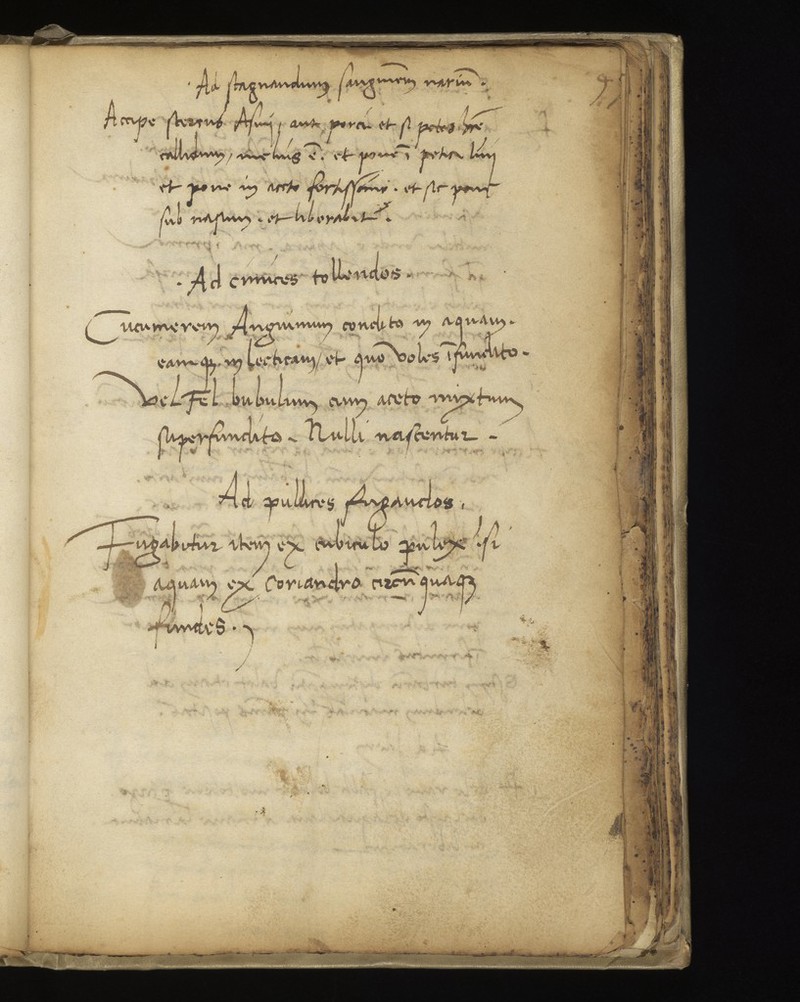 · Ad stagnandum sanguinem nariū ·
Accipe stercus Asini, aut porci et si potes hr̄e
callidum, melius ē. et pone ī petia lini
et pone in aceto fortissimo. et sic pone
sub nasum. et liberabit.
· Ad cimices tollendos ·
Cucumerem Anguinum condito in aquam.
eamq; in lecticam, et quo voles īfundito.
Vel Fel bubulum cum aceto mixtum
superfundito. Nulli nascentur.
Ad pullices fugandos.
Fugabitur item ex cubiculo pulex si
aquam ex Coriandro circū quaq;
fundes.